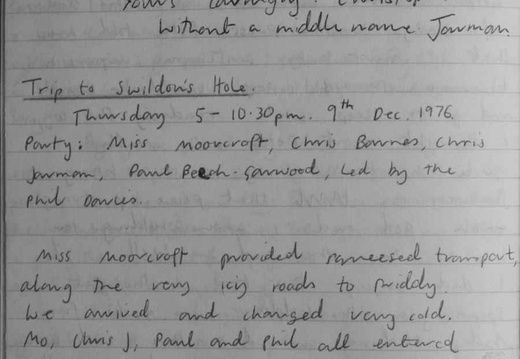 Without a middle name Jarman
Trip to Swildon's Hole.
Thursday 5-10.30pm. 9th Dec. 1976.
Party: Miss Moorcroft, Chris Barnes, Chris
Jarman, Paul Beech-Garwood, Led by the
Phil Davies.
Miss Moorcroft provided transport,
along the very icy roads to Priddy.
We arrived and changed very cold.
Mo, Chris J, Paul and Phil all entered